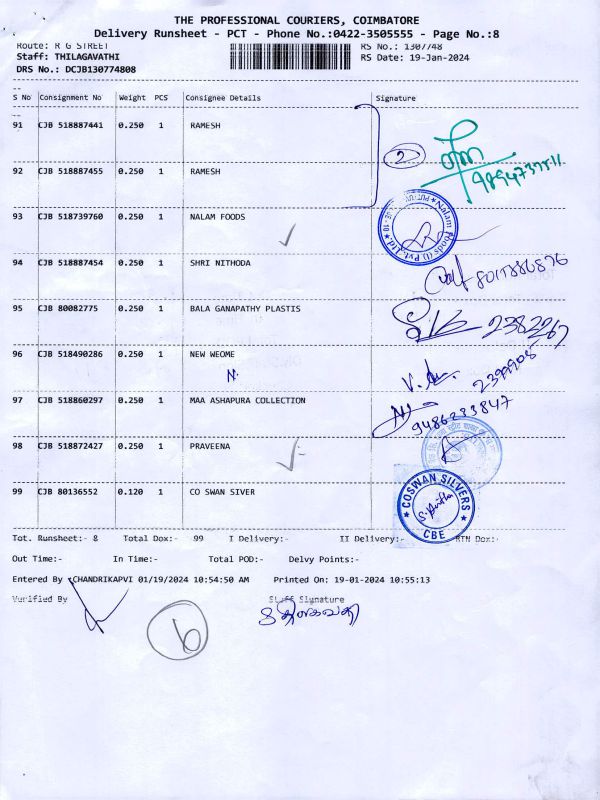 THE PROFESSIONAL COURIERS, COIMBATORE
Delivery Runsheet - PCT - Phone No.:0422-3505555 - Page No.:8
Route: R G STREET RS No.: 1307748
Staff: THILAGAVATHI RS Date: 19-Jan-2024
DRS No.: DCJB130774808
S No Consignment No Weight PCS Consignee Details Signature
91 CJB 518887441 0.250 1 RAMESH
2
92 CJB 518887455 0.250 1 RAMESH
93 CJB 518739760 0.250 1 NALAM FOODS
Nalam Foods (I) Pvt. Ltd
94 CJB 518887454 0.250 1 SHRI NITHODA
8017886876
95 CJB 80082775 0.250 1 BALA GANAPATHY PLASTIS
2382267
96 CJB 518490286 0.250 1 NEW WEOME
N.
97 CJB 518860297 0.250 1 MAA ASHAPURA COLLECTION
9486233847
98 CJB 518872427 0.250 1 PRAVEENA
99 CJB 80136552 0.120 1 CO SWAN SIVER
COSWAN SILVERS
CBE
Tot. Runsheet:- 8 Total Dox:- 99 I Delivery:- II Delivery:- RTN Dox:-
Out Time:- In Time:- Total POD:- Delvy Points:-
Entered By :CHANDRIKAPVI 01/19/2024 10:54:50 AM Printed On: 19-01-2024 10:55:13
Verified By Staff Signature
6